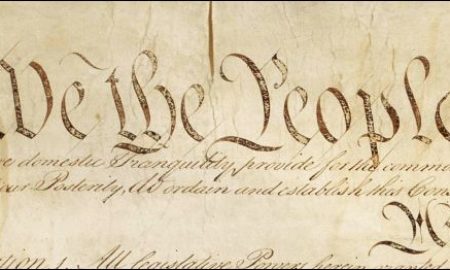 We the People
domestic Tranquility, provide for the common
our Posterity, do ordain and establish this Cons
tion. 1. All legislative Powers herein